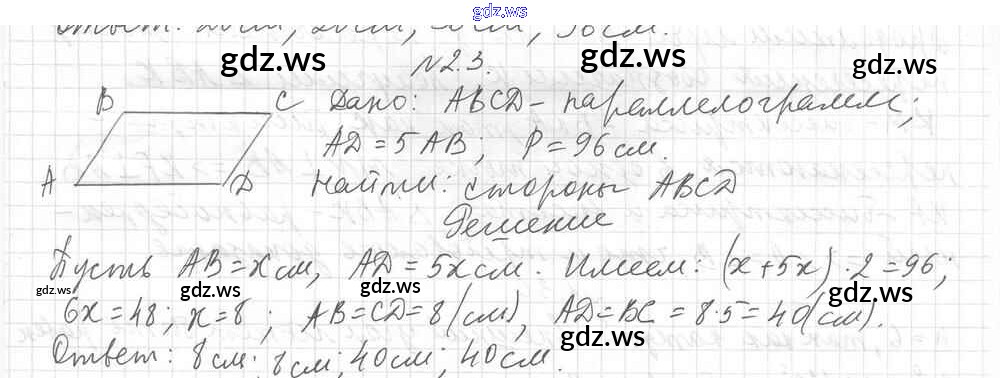 gdz.ws
Ответ: см, см, см, 36 см.
gdz.ws gdz.ws gdz.ws
№23.
B C Дано: ABCD - параллелограмм;
AD = 5 AB; P = 96 см.
A D Найти: стороны ABCD
Решение
Пусть AB = x см, AD = 5x см. Имеем: (x + 5x) · 2 = 96;
gdz.ws gdz.ws gdz.ws
6x = 48; x = 8; AB = CD = 8 (см), AD = BC = 8 · 5 = 40 (см).
gdz.ws gdz.ws
Ответ: 8 см; 8 см; 40 см; 40 см.